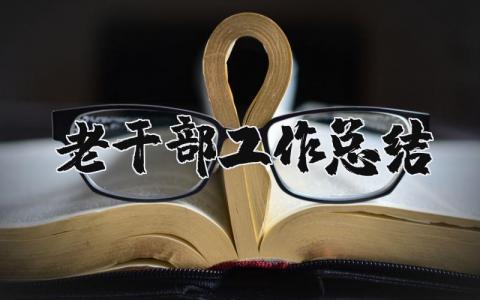 老干部工作总结